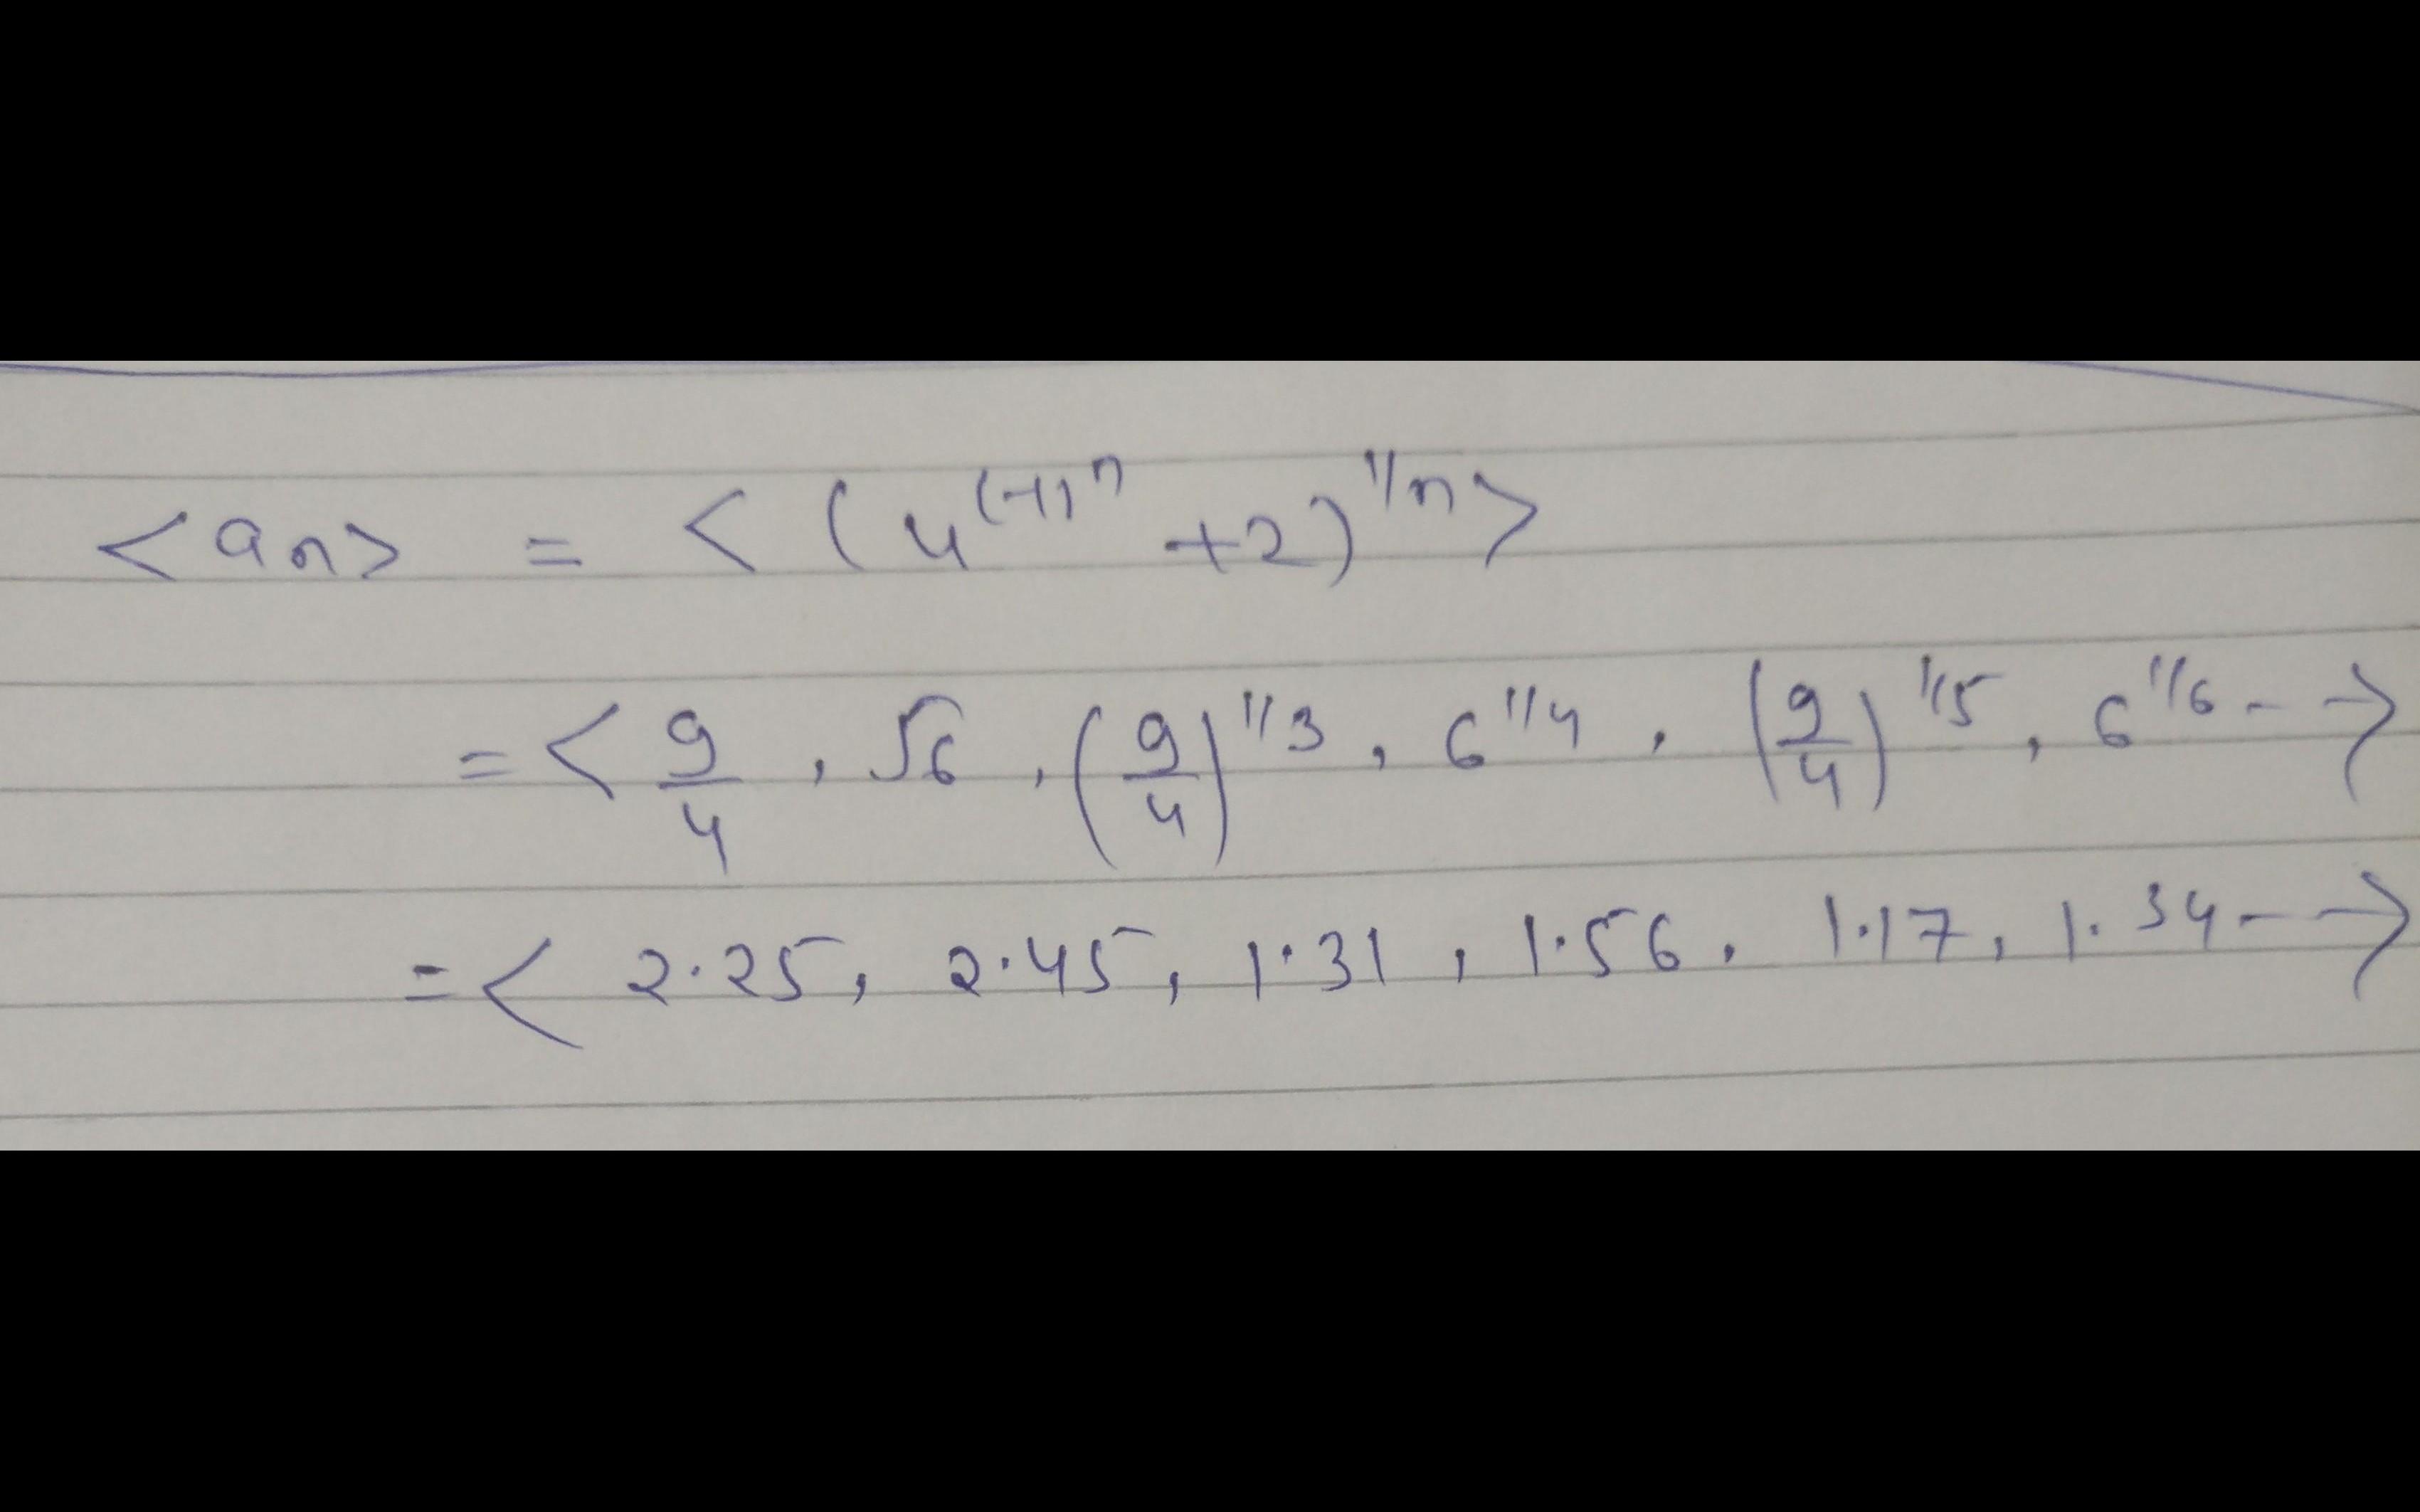 <aₙ> = <(4^(-1)^n +2)^1/n>
= < 9/4 , √6 , (9/4)^1/3 , 6^1/4 , (9/4)^1/5 , 6^1/6 - - >
= < 2.25, 2.45, 1.31, 1.56, 1.17, 1.34 - - >